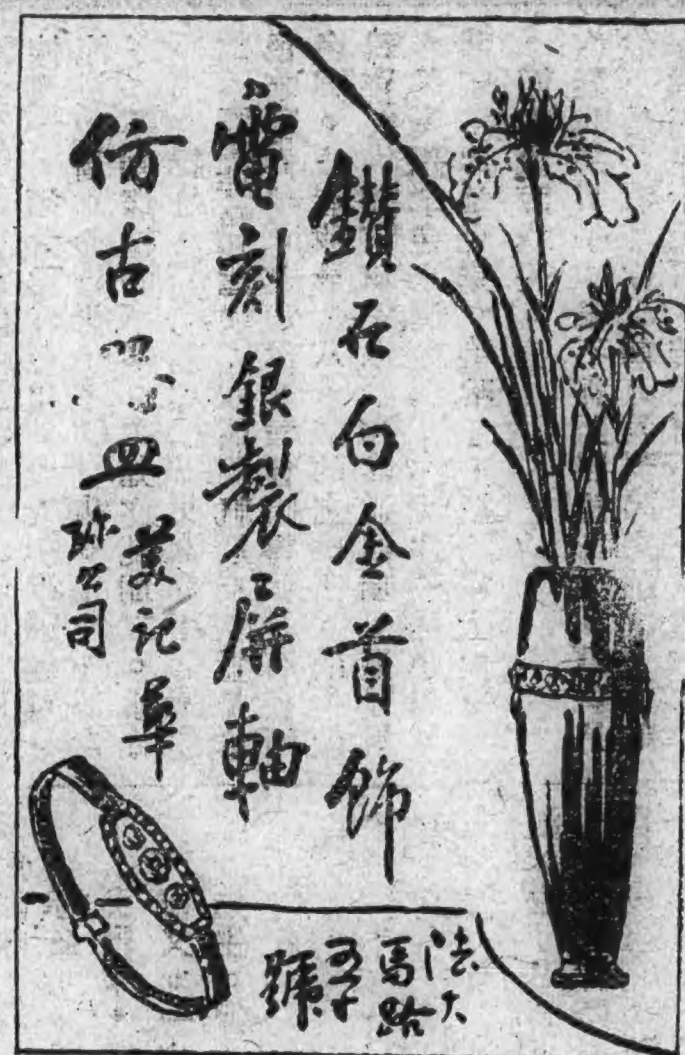 鑽石白金首飾
電刻銀製屏軸
仿古器皿
美記華
珎公司
法大
馬路
号
號